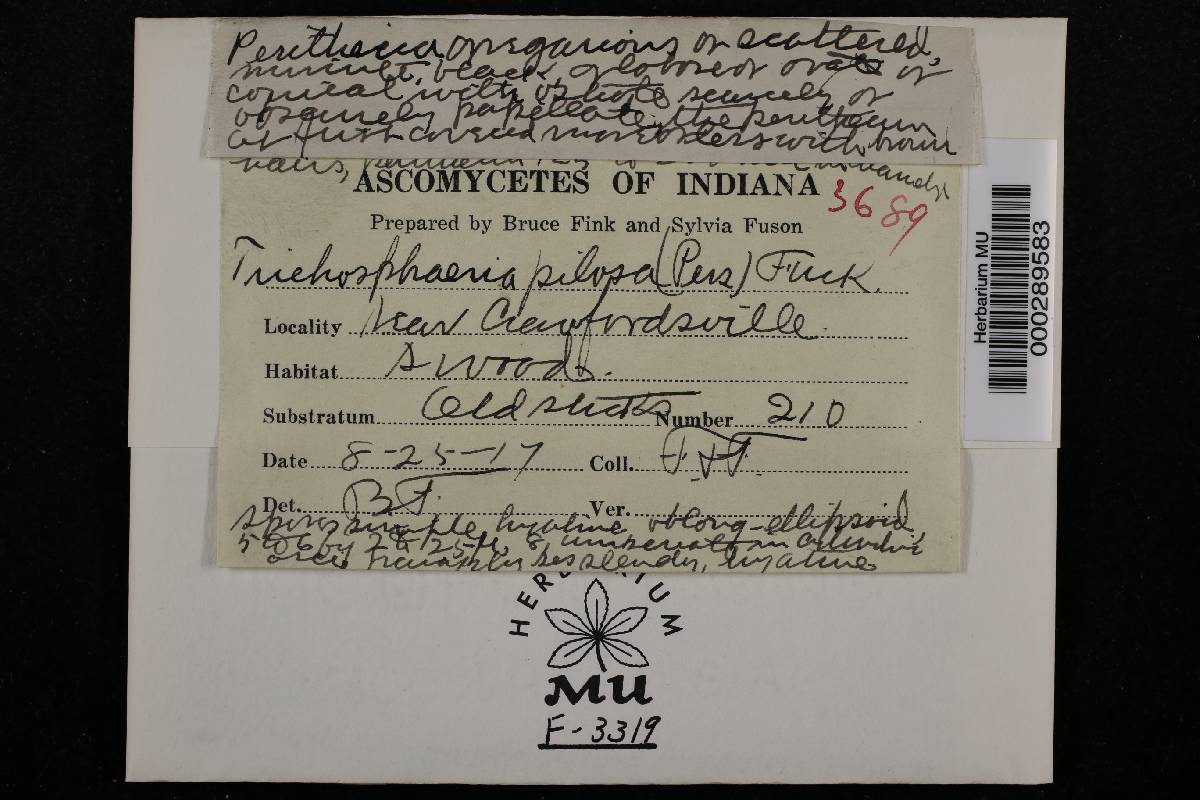 Perithecia gregarious or scattered,
minute, black, globose or ovate or
conical with ostiole scarcely or
obscurely papillate, the perithecium
at first covered more or less with brown
hairs, perithecia
ASCOMYCETES OF INDIANA
3689
Prepared by Bruce Fink and Sylvia Fuson
Trichosphaeria pilosa (Pers) Fuck.
Locality Near Crawfordsville.
Habitat A woods.
Substratum Old sticks Number 210
Date 8-25-17 Coll. F. & F.
Det. B F. Ver.
Spores simple, hyaline, oblong-ellipsoid
5 to 6 by 2 to 2.5 µ, 8, uniseriate in cylindric
asci, paraphyses slender, hyaline
Herbarium MU
0000289583
HERBARIUM
MU
F-3319